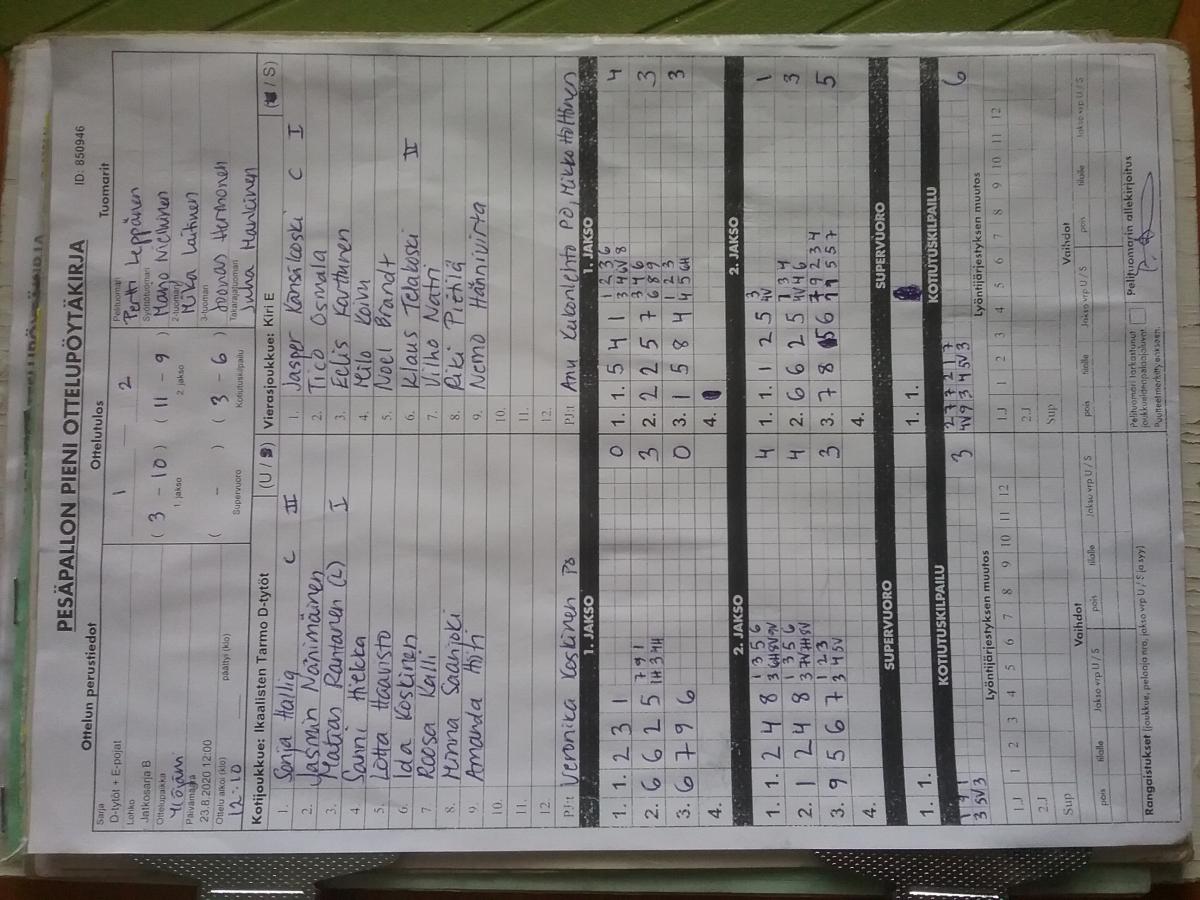 PESÄPALLON PIENI OTTELUPÖYTÄKIRJA
ID: 850946
Ottelun perustiedot
Ottelutulos
Tuomarit
Sarja
D-tytöt + E-pojat
Lohko
Jatkosarja B
Ottelupaikka
Päivämäärä
23.8.2020 12:00
Ottelu alkoi (klo)
12:10
päättyi (klo)
1 2
( 3 - 10 ) ( 11 - 9 )
1 jakso
2. jakso
( - ) ( 3 - 6 )
Supervuoro
Kotiutuskilpailu
Pelituomari
Pertti Leppänen
Syöttötuomari
2-tuomari
Mika Laitinen
3-tuomari
Joonas Hermonen
Takarajatuomari
Juha Mankinen
Kotijoukkue: Ikaalisten Tarmo D-tytöt
(U / S)
1. Sonja Hallig C II
2. Jasmin Nänimäinen
3. Matias Rantanen (L) I
4. Sanni Hielkka
5. Lotta Haavisto
6. Ida Koskinen
7. Roosa Kalli
8. Minna Saarijoki
9. Amanda Hoiti
10.
11.
12.
PJ:t Veronika Keskinen PO
Vierasjoukkue: Kiri E
1. Jasper Kansikoski C I
2. Tico Osmala
3. Eelis Karttunen
4. Milo Koivu
5. Noel Brandt
6. Klaus Telakoski II
7. Vilho Natri
8. Riki Pietilä
9. Nemo Hänniivirta
10.
11.
12.
PJ:t Anu Kukonlehto PO, Mikko Holttinen
1. JAKSO
1. 1. 2 3 1 0
2. 6 6 2 5 7 9 1 3
3. 6 7 9 6 0
4.
1. JAKSO
1. 1. 5 4 1 1 2 3 6 4
2. 2 2 5 7 3 4 6 3
6 8 9
3. 1 5 8 4 1 2 3 3
4 5 6H
4.
2. JAKSO
1. 1. 2 4 8 1 3 5 6 4
2. 1 2 4 8 1 3 5 6 4
3. 9 5 6 7 1 2 3 3
3 4 5V
4.
2. JAKSO
1. 1. 1 2 5 3 1
4V
2. 6 6 2 5 1 3 4 3
3. 7 8 5 6 7 5
4.
SUPERVUORO
1. 1.
SUPERVUORO
1. 1.
KOTIUTUSKILPAILU
1 9 1 3
3 5V 3
KOTIUTUSKILPAILU
6
4V 9 3 4 5V 3
Lyöntijärjestyksen muutos
1 2 3 4 5 6 7 8 9 10 11 12
1.J
2.J
Sup
Lyöntijärjestyksen muutos
1 2 3 4 5 6 7 8 9 10 11 12
1.J
2.J
Sup
Vaihdot
pois tilalle Jakso vrp U / S pois tilalle Jakso vrp U / S
Vaihdot
pois tilalle Jakso vrp U / S pois tilalle Jakso vrp U / S
Rangaistukset (joukkue, pelaaja nro, jakso vrp U / S ja syy)
Pelituomari tarkastanut
joukkueiden pelaajaluvat.
Puutteet merkitty erikseen.
Pelituomarin allekirjoitus